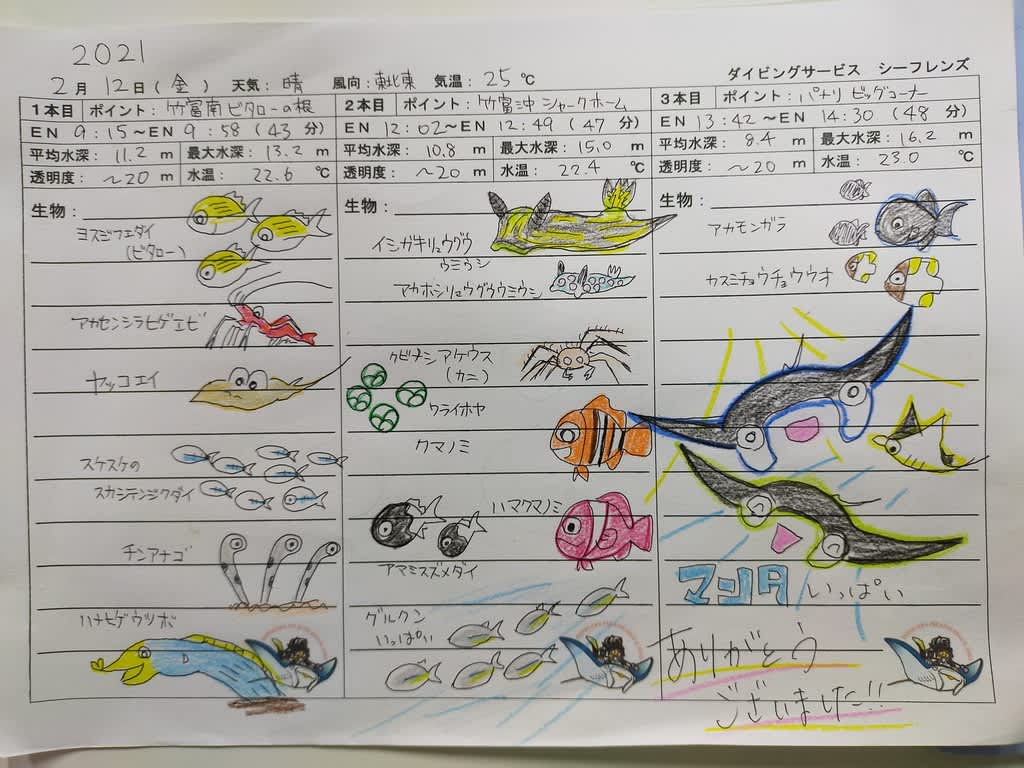 2021
2月 12日(金) 天気: 晴 風向: 東北東 気温: 25℃
ダイビングサービス シーフレンズ
1本目 ポイント: 竹富南 ビタローの根
EN 9:15～EN 9:58 (43 分)
平均水深: 11.2 m 最大水深: 13.2 m
透明度: ～20 m 水温: 22.6 ℃
生物:
ヨスジフエダイ
(ビタロー)
アカセンシラヒゲエビ
ヤッコエイ
スケスケの
スカシテンジクダイ
チンアナゴ
ハナヒゲウツボ
2本目 ポイント: 竹富沖 シャークホーム
EN 12:02～EN 12:49 (47 分)
平均水深: 10.8 m 最大水深: 15.0 m
透明度: ～20 m 水温: 22.4 ℃
生物:
イシガキリュウグウ
ウミウシ
アカホシリュウグウウミウシ
クビナシアケウス
(カニ)
ワライボヤ
クマノミ
ハマクマノミ
アマミスズメダイ
グルクン
いっぱい
3本目 ポイント: パナリ ビッグコーナー
EN 13:42～EN 14:30 (48 分)
平均水深: 8.4 m 最大水深: 16.2 m
透明度: ～20 m 水温: 23.0 ℃
生物:
アカモンガラ
カスミチョウチョウウオ
マンタ いっぱい
ありがとう
ございました!!